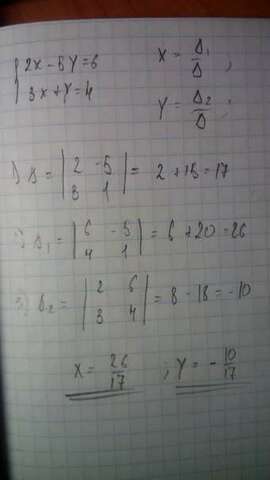 { 2x - 5y = 6     x = Δ₁/Δ ;
{ 3x + y = 4     y = Δ₂/Δ ;
1) Δ = | 2 -5 ; 3 1 | = 2 + 15 = 17
2) Δ₁ = | 6 -5 ; 4 1 | = 6 + 20 = 26
3) Δ₂ = | 2 6 ; 3 4 | = 8 - 18 = -10
x = 26/17 ; y = - 10/17